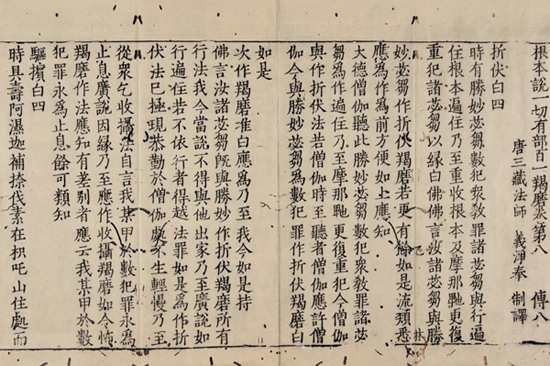 根本說一切有部百一羯磨卷第八 傅八
唐三藏法師 義淨奉 制譯
折伏白四
時有勝妙苾芻數犯衆教罪諸苾芻與行遍
住根本遍住乃至重收根本及摩那馳更復
重犯諸苾芻以緣白佛佛言汝諸苾芻與勝
妙苾芻作折伏羯磨若更有餘如是流類悉
應為作為前方便如上應知
大德僧伽聽此勝妙苾芻數犯衆教罪諸苾
芻為作遍住乃至摩那馳更復重犯今僧伽
與作折伏法若僧伽時至聽者僧伽應許僧
伽今與勝妙苾芻作折伏羯磨白
如是
次作羯磨准白應為乃至我今如是持
佛言汝諸苾芻既與勝妙作折伏羯磨所有
行法我今當說不得與他出家乃至廣說如
行遍住若不依行者得越法罪如是為作折
伏法已極現恭勤於僧伽處不生輕慢乃至
從衆乞收攝法自言我某甲於數犯罪永為
止息廣說因緣乃至應作收攝羯磨如令怖
羯磨作法應知有差別者應云我某甲於數
犯罪永為止息餘可類知
驅擯白四
時具壽阿濕迦補捺伐素在枳吒山住處而